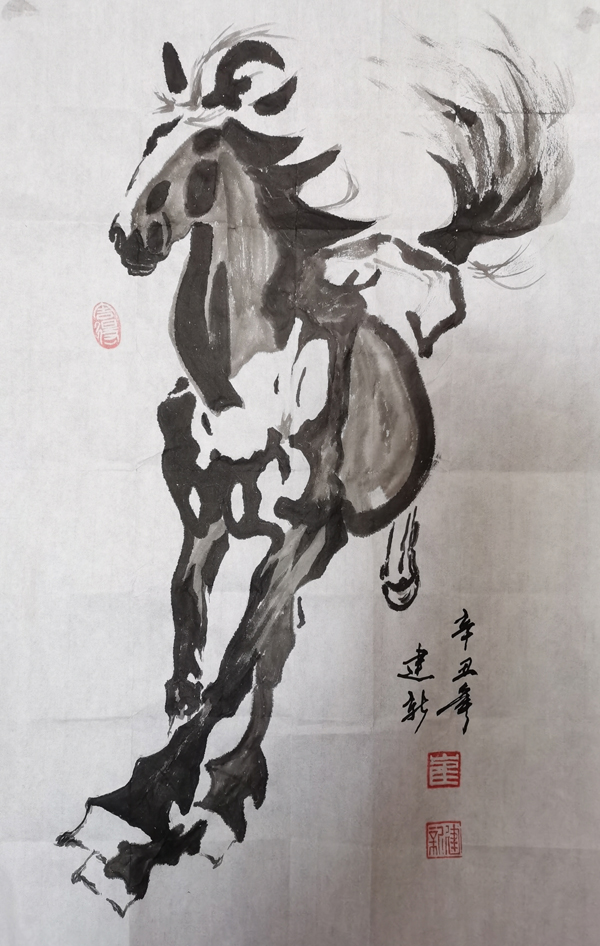 辛丑年
建新
崔
建新
舍得